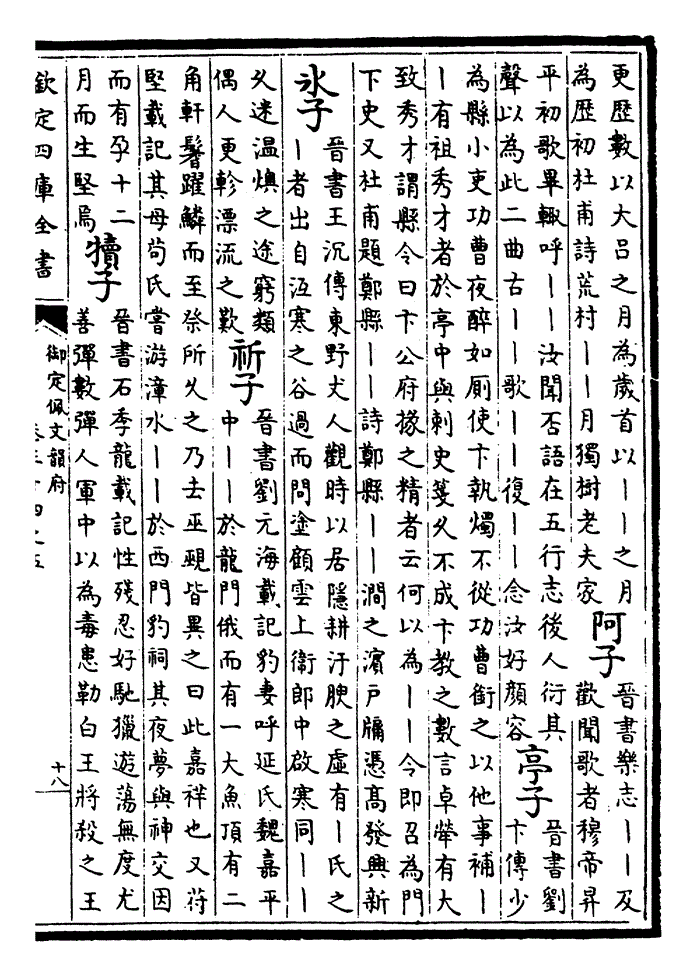 更歴數以大吕之月為歲首以丨丨之月
為歴初杜甫詩荒村丨丨月獨樹老夫家
阿子
晉書樂志丨丨及
歡聞歌者穆帝昇
平初歌畢輒呼丨丨汝聞否語在五行志後人衍其
聲以為此二曲古丨丨歌丨丨復丨丨念汝好顔容
亭子
晉書劉
卞傳少
為縣小吏功曹夜醉如厠使卞執燭不從功曹銜之以他事補丨
丨有祖秀才者於亭中與刺史箋久不成卞教之數言卓犖有大
致秀才謂縣令曰卞公府掾之精者云何以為丨丨令即召為門
下史又杜甫題鄭縣丨丨詩鄭縣丨丨澗之濱戶牖憑髙發興新
氷子
晉書王沉傳東野丈人觀時以居隱耕汙腴之虛有丨氏之
丨者出自沍寒之谷過而問塗顧雲上衛郎中啟寒同丨丨
久迷温燠之途窮類
偶人更軫漂流之歎
祈子
晉書劉元海載記豹妻呼延氏魏嘉平
中丨丨於龍門俄而有一大魚頂有二
角軒鬐躍鱗而至祭所久之乃去巫覡皆異之曰此嘉祥也又苻
堅載記其母茍氏嘗游漳水丨丨於西門豹祠其夜夢與神交因
而有孕十二
月而生堅焉
犢子
晉書石季龍載記性殘忍好馳獵遊蕩無度尤
善彈數彈人軍中以為毒患勒白王將殺之王
欽定四庫全書
御定佩文韻府
卷三十四之五
十八